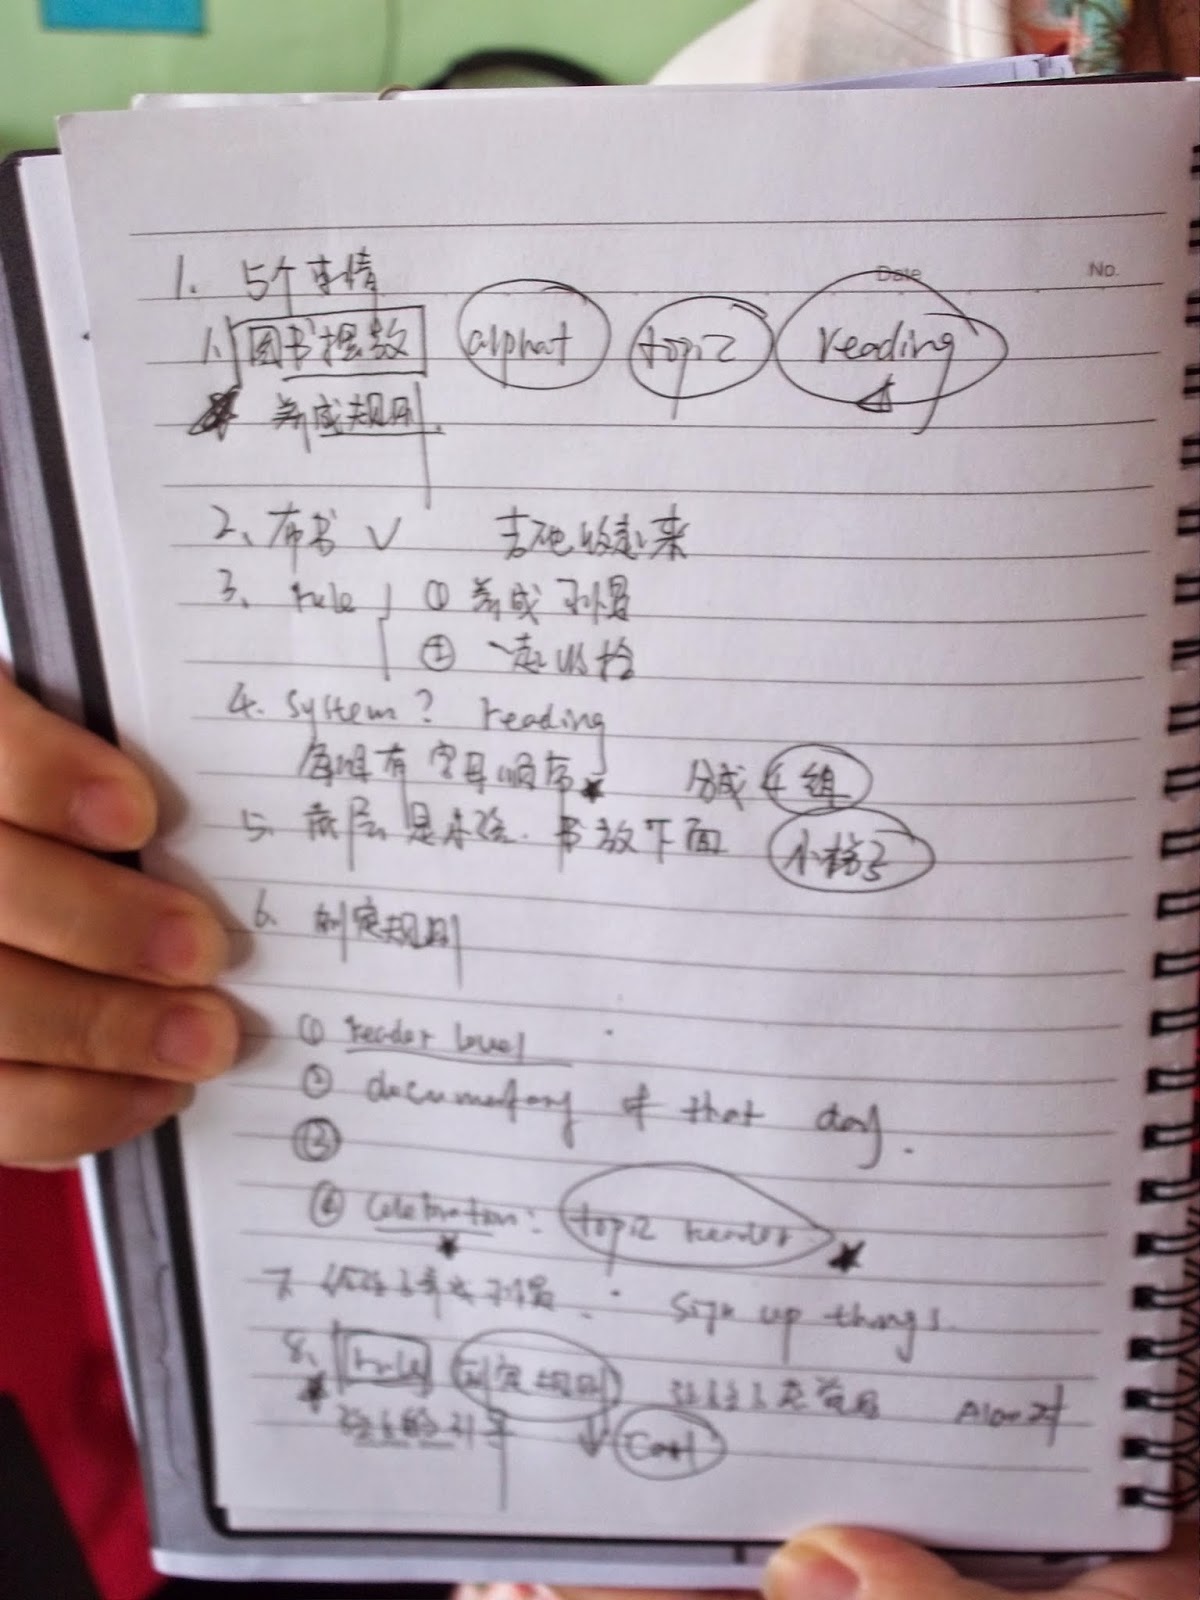 Date No.
1. 5个事情
1. 图书摆放 alphat topic reading
养成规则.
2、布书 ✓ 吉他收起来
3、rule ① 养成习惯
② 一起
4. System? reading
每组有字母顺序 分成4组
5. 底层是 书放下面 小格子
6. 制定规则
① reader level
② documentary of that day.
③
④ Celebration: topic reader
7. 习惯 Sign up things.
8、rule 制定规则